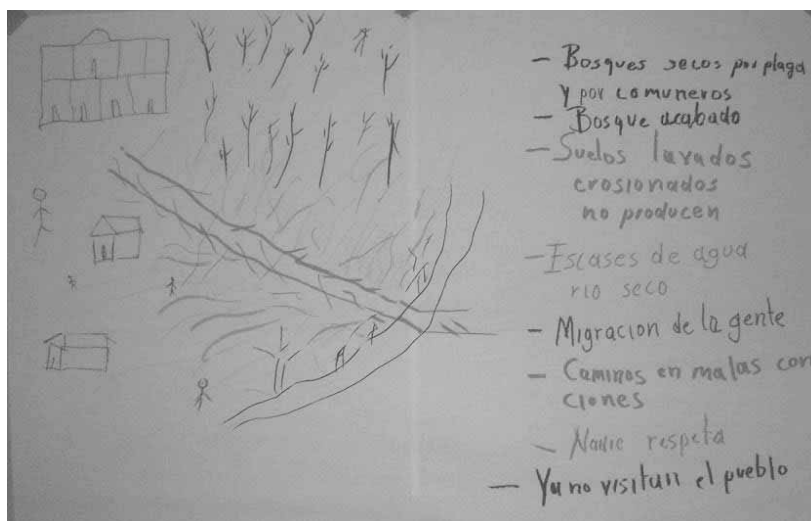 - Bosques secos por plaga
y por comuneros
- Bosque acabado
- Suelos lavados
erosionados
no producen
- Escases de agua
rio seco
- Migracion de la gente
- Caminos en malas con
ciones
- Nadie respeta
- Ya no visitan el pueblo